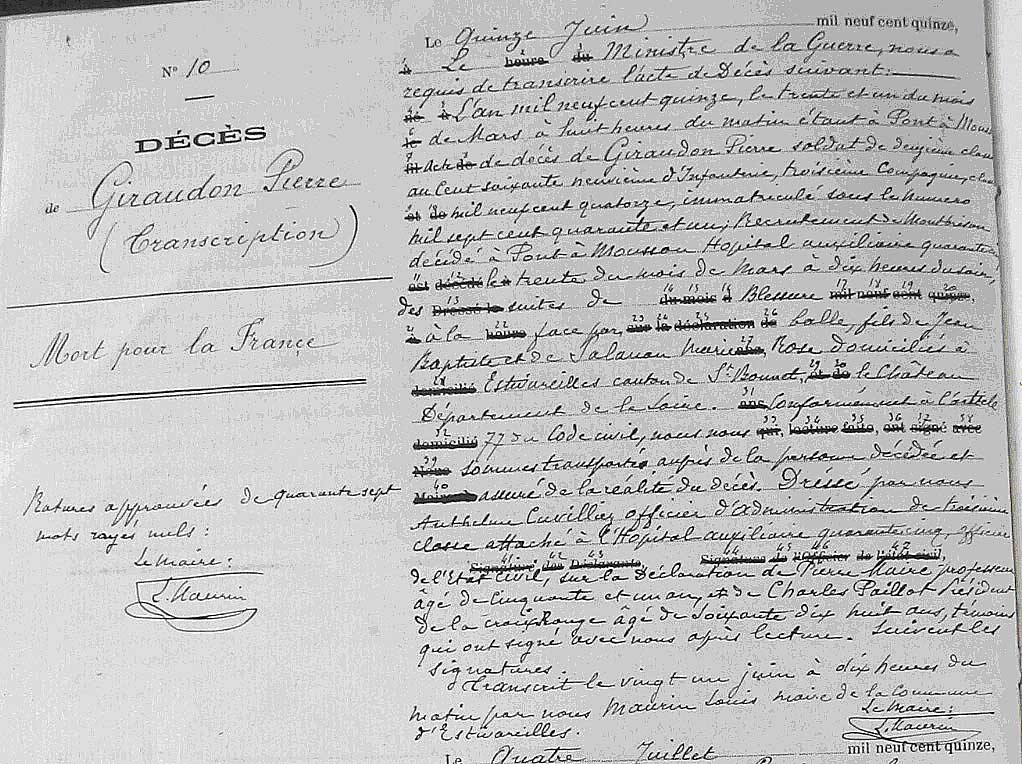 N° 10
DÉCÈS
de Giraudon Pierre
(Transcription)
Mort pour la France
Ratures approuvées de quarante sept
mots rayés nuls:
Le Maire:
L. Maurin
Le Quinze Juin mil neuf cent quinze,
à Le heure du Ministre de la Guerre, nous a
requis de transcrire l'acte de Décès suivant:
L'an mil neuf cent quinze, le trente et un du mois
de Mars à huit heures du matin étant à Pont à Mous
Acte de décès de Giraudon Pierre soldat de deuxième classe
au Cent soixante neuvième d'Infanterie, troisième Compagnie, classe
et de mil neuf cent quatorze, immatriculé sous le numéro
mil sept cent quarante et un, Recrutement de Montbrison
décédé à Pont à Mousson Hopital auxiliaire quarante cinq
est décédé le trente du mois de Mars à dix heures du soir,
des Dressé le suites de du mois d Blessure mil neuf cent quinze,
à à la heure face par sur la déclaration de balle, fils de Jean
Baptiste et de Salanon Marie Rose domiciliés à
domicilié Estivareilles canton de St Bonnet, et de le Château
Département de la Loire. ans Conformément à l'article
domicilié 77 du Code civil, nous nous qui, lecture faite, ont signé avec
Nous sommes transportés auprès de la personne décédée et
assuré de la réalité du décès. Dréssé par nous
Anthelme Cuvilliez officier d'Administration de troisième
classe attaché à l'Hôpital auxiliaire quarante cinq, officier
Signature des Déclarants, Signature de l'Officier de l'état civil,
de l'Etat Civil, sur la Déclaration de Pierre Maire professeur
âgé de Cinquante et un an, et de Charles Paillot Président
de la croix Rouge âgé de Soixante dix huit ans, témoins
qui ont signé avec nous après lecture. Suivent les
signatures.
Transcrit le vingt un juin à dix heures du
matin par nous Maurin Louis maire de la Commune
d'Estivareilles.
Le Maire:
L. Maurin
Le Quatre Juillet mil neuf cent quinze,